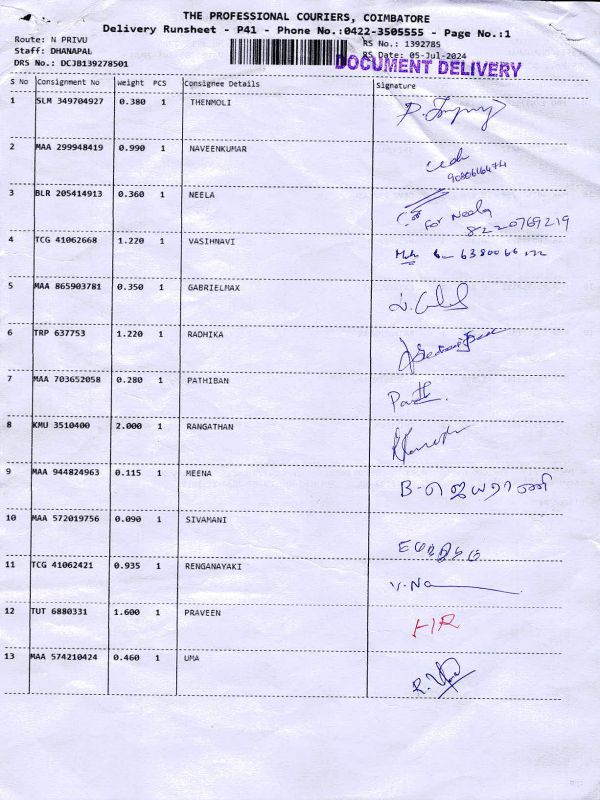 THE PROFESSIONAL COURIERS, COIMBATORE
Delivery Runsheet - P41 - Phone No.:0422-3505555 - Page No.:1
Route: N PRIVU
RS No.: 1392785
Staff: DHANAPAL
RS Date: 05-Jul-2024
DRS No.: DCJB139278501
DOCUMENT DELIVERY
S No Consignment No Weight PCS Consignee Details Signature
1 SLM 349704927 0.380 1 THENMOLI
2 MAA 299948419 0.990 1 NAVEENKUMAR
3 BLR 205414913 0.360 1 NEELA
For Neela
8220769219
4 TCG 41062668 1.220 1 VASIHNAVI
5 MAA 865903781 0.350 1 GABRIELMAX
6 TRP 637753 1.220 1 RADHIKA
7 MAA 703652058 0.280 1 PATHIBAN
8 KMU 3510400 2.000 1 RANGATHAN
9 MAA 944824963 0.115 1 MEENA B-ஜெயராணி
10 MAA 572019756 0.090 1 SIVAMANI
11 TCG 41062421 0.935 1 RENGANAYAKI
12 TUT 6880331 1.600 1 PRAVEEN
13 MAA 574210424 0.460 1 UMA